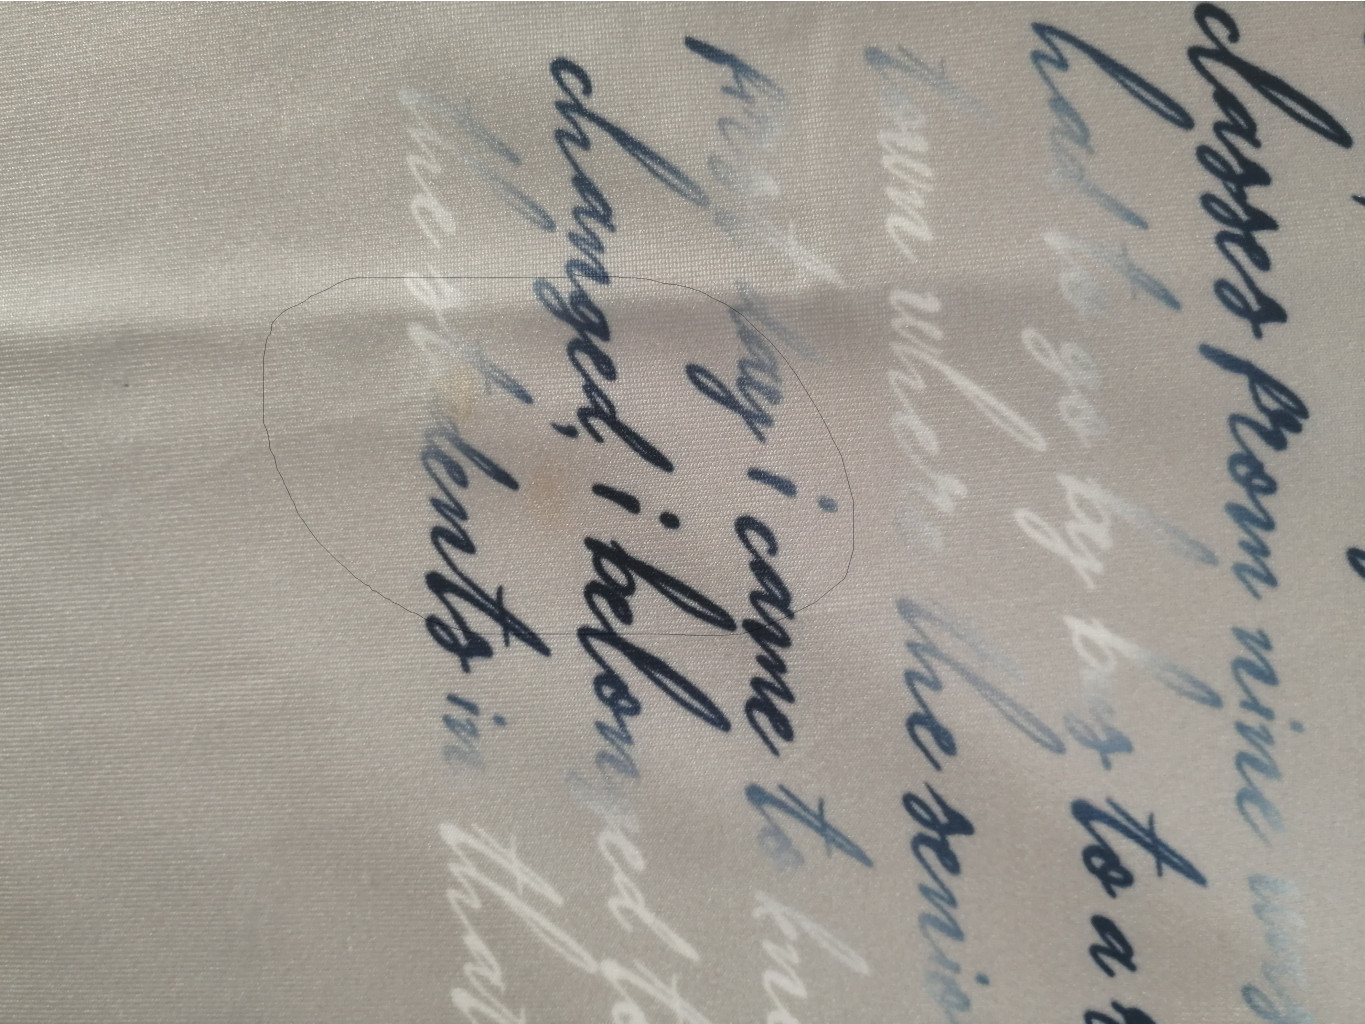 classes from nine
had to go by bus to a
town when the
first day i came to
changed, i belonged to
the students in that